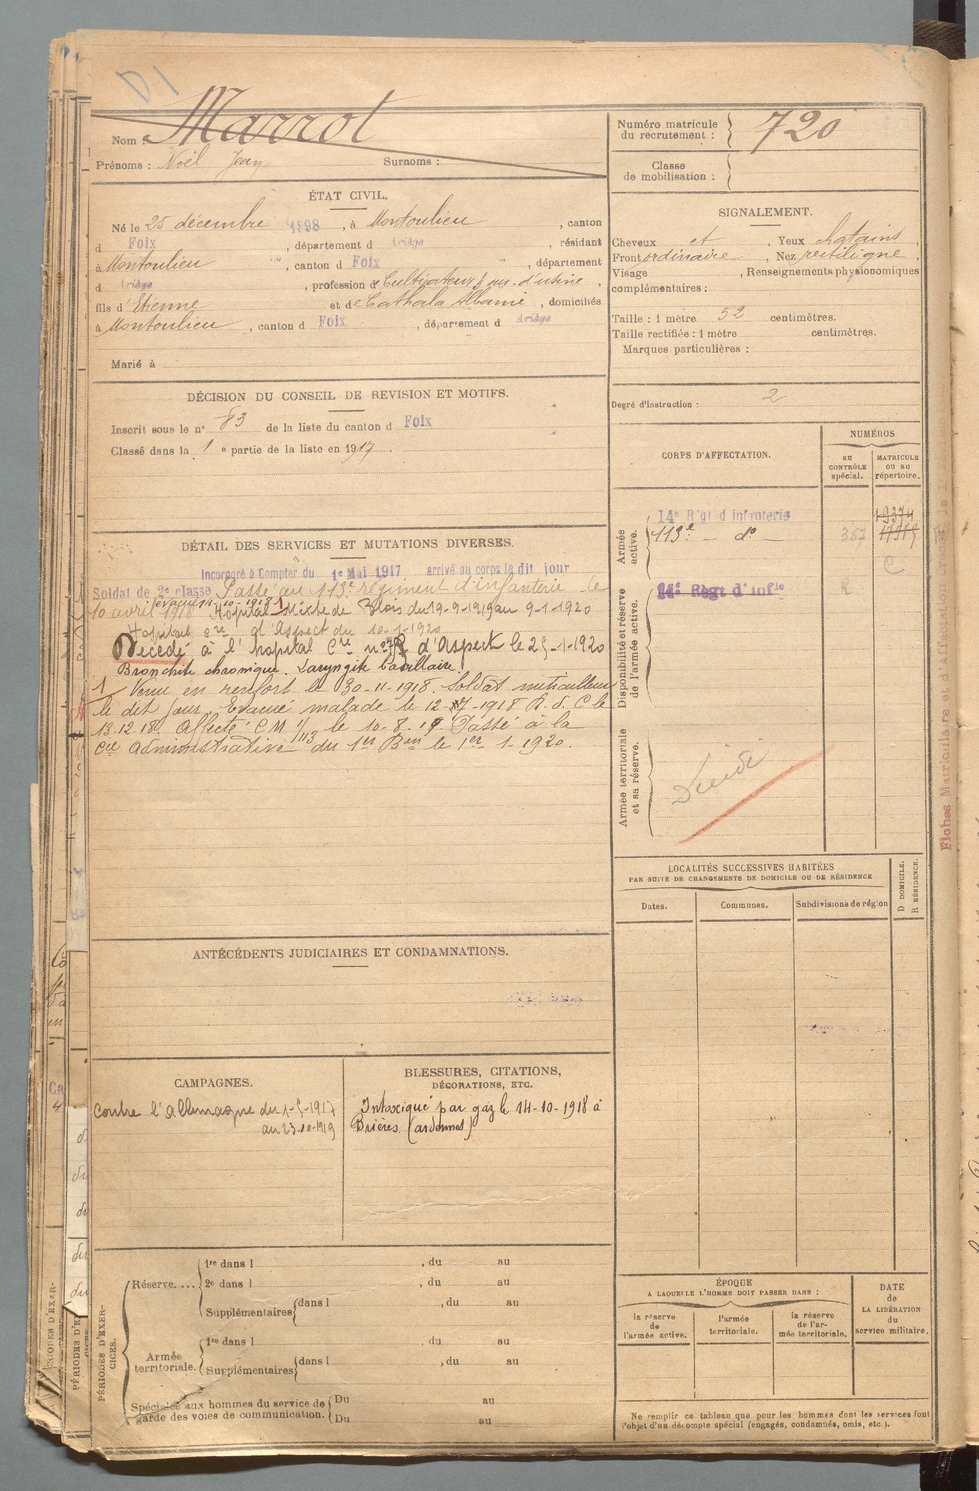 Nom : Marrot
Prénoms : Noël Jean Surnoms :
Numéro matricule du recrutement : 720
Classe de mobilisation :
ÉTAT CIVIL.
Né le 25 décembre 1898, à Montoulieu, canton
d Foix, département d Ariège, résidant
à Montoulieu, canton d Foix, département
d Ariège, profession de Cultivateur, ouv. d'usine,
fils d'Etienne et de Cathala Albanie, domiciliés
à Montoulieu, canton d Foix, département d Ariège
Marié à
SIGNALEMENT.
Cheveux et, Yeux chatains,
Front ordinaire, Nez rectiligne,
Visage, Renseignements physionomiques
complémentaires :
Taille : 1 mètre 52 centimètres.
Taille rectifiée : 1 mètre centimètres.
Marques particulières :
Degré d'instruction : 2
DÉCISION DU CONSEIL DE REVISION ET MOTIFS.
Inscrit sous le n° 83 de la liste du canton d Foix
Classé dans la 1e partie de la liste en 1917.
CORPS D'AFFECTATION.
NUMÉROS
AU CONTRÔLE spécial.
MATRICULE OU AU répertoire.
Armée active.
14e Régt d'infanterie
113e — do —
C
Disponibilité et réserve de l'armée active.
14e Régt d'Infie
R
Armée territoriale et sa réserve.
DÉTAIL DES SERVICES ET MUTATIONS DIVERSES.
Incorporé à Compter du 1er Mai 1917 arrivé au corps le dit jour
Soldat de 2e classe Passé au 113e régiment d'infanterie le
10 avril 1918 Hôpital Mixte de Blois du 19-9-1919 au 9-1-1920
Hôpital d'Aspect du 10-1-1920
Décédé à l'hopital d'Aspect le 25-1-1920
Bronchite chronique. Laryngite bacillaire.
1 Venu en renfort le 30-11-1918. Soldat mitrailleur
le dit jour. Evacué malade le 12-
13-12-18. Affecté C M 1/113 le 10-8-19 Passé à la
Cie administrative du 1er Bon le 1er 1-1920.
ANTÉCÉDENTS JUDICIAIRES ET CONDAMNATIONS.
LOCALITÉS SUCCESSIVES HABITÉES
PAR SUITE DE CHANGEMENTS DE DOMICILE OU DE RÉSIDENCE
Dates.
Communes.
Subdivisions de région
D DOMICILE.
R RÉSIDENCE.
CAMPAGNES.
Contre l'Allemagne du 1-5-1917
au 23-10-1919
BLESSURES, CITATIONS,
DÉCORATIONS, ETC.
Intoxiqué par gaz le 14-10-1918 à
Brières (ardennes)
PÉRIODES D'EXERCICES.
Réserve....
1re dans l, du au
2e dans l, du au
Supplémentaires dans l, du au
Armée territoriale.
1re dans l, du au
Supplémentaires dans l, du au
Spéciales aux hommes du service de garde des voies de communication.
Du au
Du au
ÉPOQUE
A LAQUELLE L'HOMME DOIT PASSER DANS :
la réserve de l'armée active.
l'armée territoriale.
la réserve de l'armée territoriale.
DATE de LA LIBÉRATION du service militaire.
Ne remplir ce tableau que pour les hommes dont les services font
l'objet d'un décompte spécial (engagés, condamnés, omis, etc.).